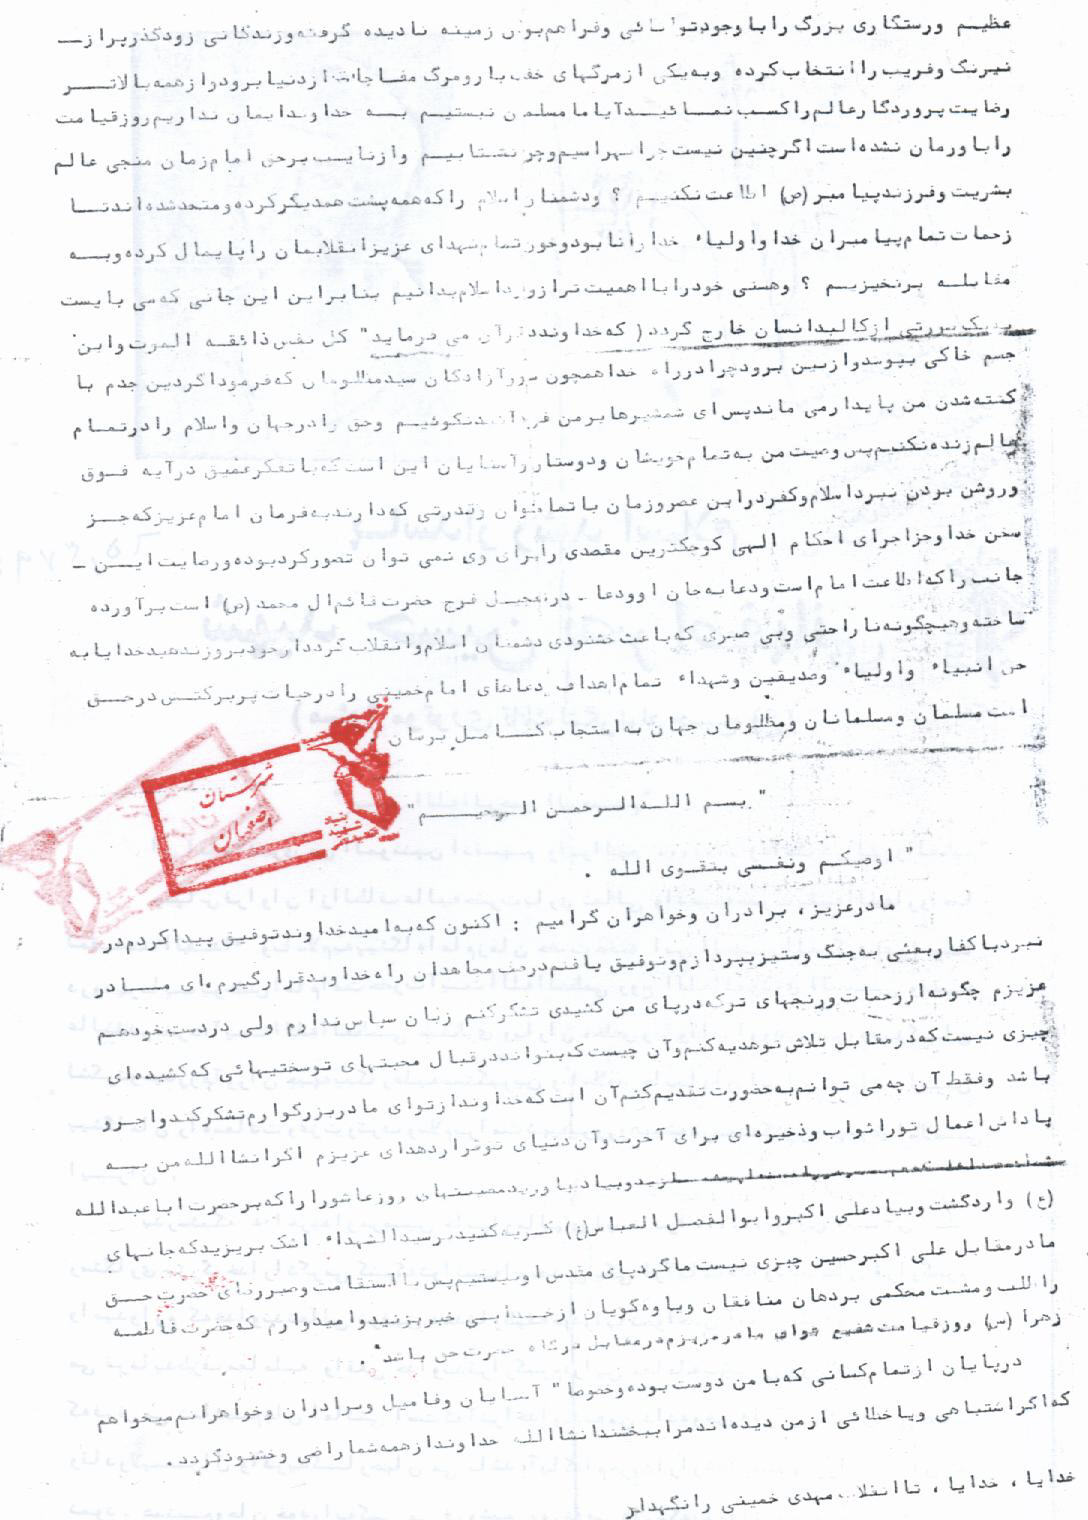 عظیم ورستگاری بزرگ را با وجود توانائی وفراهم بودن زمینه نادیده گرفته وزندگانی زودگذر پر از
نیرنگ وفریب را انتخاب کرده وبه یکی از مرگهای خفت بار ومرگ مفاجات از دنیا برود از همه بالاتر
رضایت پروردگار عالم را کسب نمائید آیا ما مسلمان نیستیم به خداوند ایمان نداریم روز قیامت
را باورمان نشده است اگر چنین نیست چرا بهراسیم و چرا نشتابیم و از نایب برحق امام زمان منجی عالم
بشریت وفرزند پیامبر (ص) اطاعت نکنیم ؟ ودشمنان اسلام را که همه پشت همدیگر کرده و متحد شده اند تا
زحمات تمام پیامبران خدا واولیاء خدا را نابود وخون تمام شهدای عزیز انقلابمان را پایمال کرده وبه
مقابله برنخیزیم ؟ وهستی خود را با اهمیت تر از اسلام بدانیم بنابراین این جانی که می بایست
از کالبد انسان خارج گردد ( که خداوند در قرآن می فرماید " کل نفس ذائقه الموت واین
جسم خاکی بپوسد واز بین برود چرا در راه خدا همچون سرور آزادگان سید مظلومان که فرمود اگر دین جدم با
کشته شدن من پایدار می ماند پس ای شمشیرها بر من فرود آئید نگوئیم وحق را در جهان واسلام را در تمام
عالم زنده نکنیم پس وصیت من به تمام خویشان ودوستان و آشنایان این است که با تفکر عمیق در آیه فوق
وروشن بودن نبرد اسلام وکفر در این عصر وزمان با تمام توان وقدرتی که دارند به فرمان امام عزیز که جز
سخن خدا وجز اجرای احکام الهی کوچکترین مقصدی را برای وی نمی توان تصور کرد بوده ورضایت این
جانب را که اطاعت امام است ودعا به جان او ودعا در تعجیل فرج حضرت قائم ال محمد (ص) است برآورده
ساخته وهیچگونه ناراحتی وبی صبری که باعث خشنودی دشمنان اسلام وانقلاب گردد از خود بروز ندهید خدایا به
حق انبیاء واولیاء وصدیقین وشهداء تمام اهداف دعاهای امام خمینی را در حیات پر برکتش در حق
امت مسلمان ومسلمانان ومظلومان جهان به استجاب کامل برسان
" بسم الله الرحمن الرحیم "
" اوصیکم ونفسی بتقوی الله .
مادر عزیز ، برادران وخواهران گرامیم : اکنون که به امید خداوند توفیق پیدا کردم در
نبرد با کفار بعثی به جنگ وستیز بپردازم وتوفیق یافتم در صف مجاهدان راه خدا وبد قرار گیرم . ای مادر
عزیزم چگونه از زحمات ورنجهای تو که در پای من کشیدی تشکر کنم زبان سپاس ندارم ولی در دست خود هم
چیزی نیست که در مقابل تلاش تو هدیه کنم وآن چیست که بتواند در قبال محبتهای تو سختیهائی که کشیده ای
باشد وفقط آن چه می توانم به حضورت تقدیم کنم آن است که خداوند از تو ای مادر بزرگوارم تشکر کند واجر و
پاداش اعمال تو را ثواب وذخیره ای برای آخرت وآن دنیای تو قرار دهد ای عزیزم اگر انشاالله من به
وبیاد بیاورید مصیبتهای روز عاشورا را که بر حضرت اباعبدالله
(ع) وارد گشت وبیاد علی اکبر و ابوالفضل العباس (ع) گریه کنید بر سیدالشهداء اشک بریزید که جانهای
ما در مقابل علی اکبر حسین چیزی نیست ما گرد پای مقدس او نیستیم پس با استقامت وصبر رضای حضرت حق
را طلب ومشت محکمی بر دهان منافقان ویاوه گویان از خدا بی خبر بزنید وامیدوارم که حضرت فاطمه
زهرا (س) روز قیامت شفیع توای مادر عزیزم در مقابل درگاه حضرت حق باشد .
در پایان از تمام کسانی که با من دوست بوده وخصوصا " آشنایان وفامیل وبرادران وخواهرانم میخواهم
که اگر اشتباهی ویا خطائی از من دیده اند مرا ببخشند انشاالله خداوند از همه شما راضی وخشنود گردد .
خدایا ، خدایا ، تا انقلاب مهدی خمینی را نگهدار
شهرستان
اصفهان
بنیاد
شهید